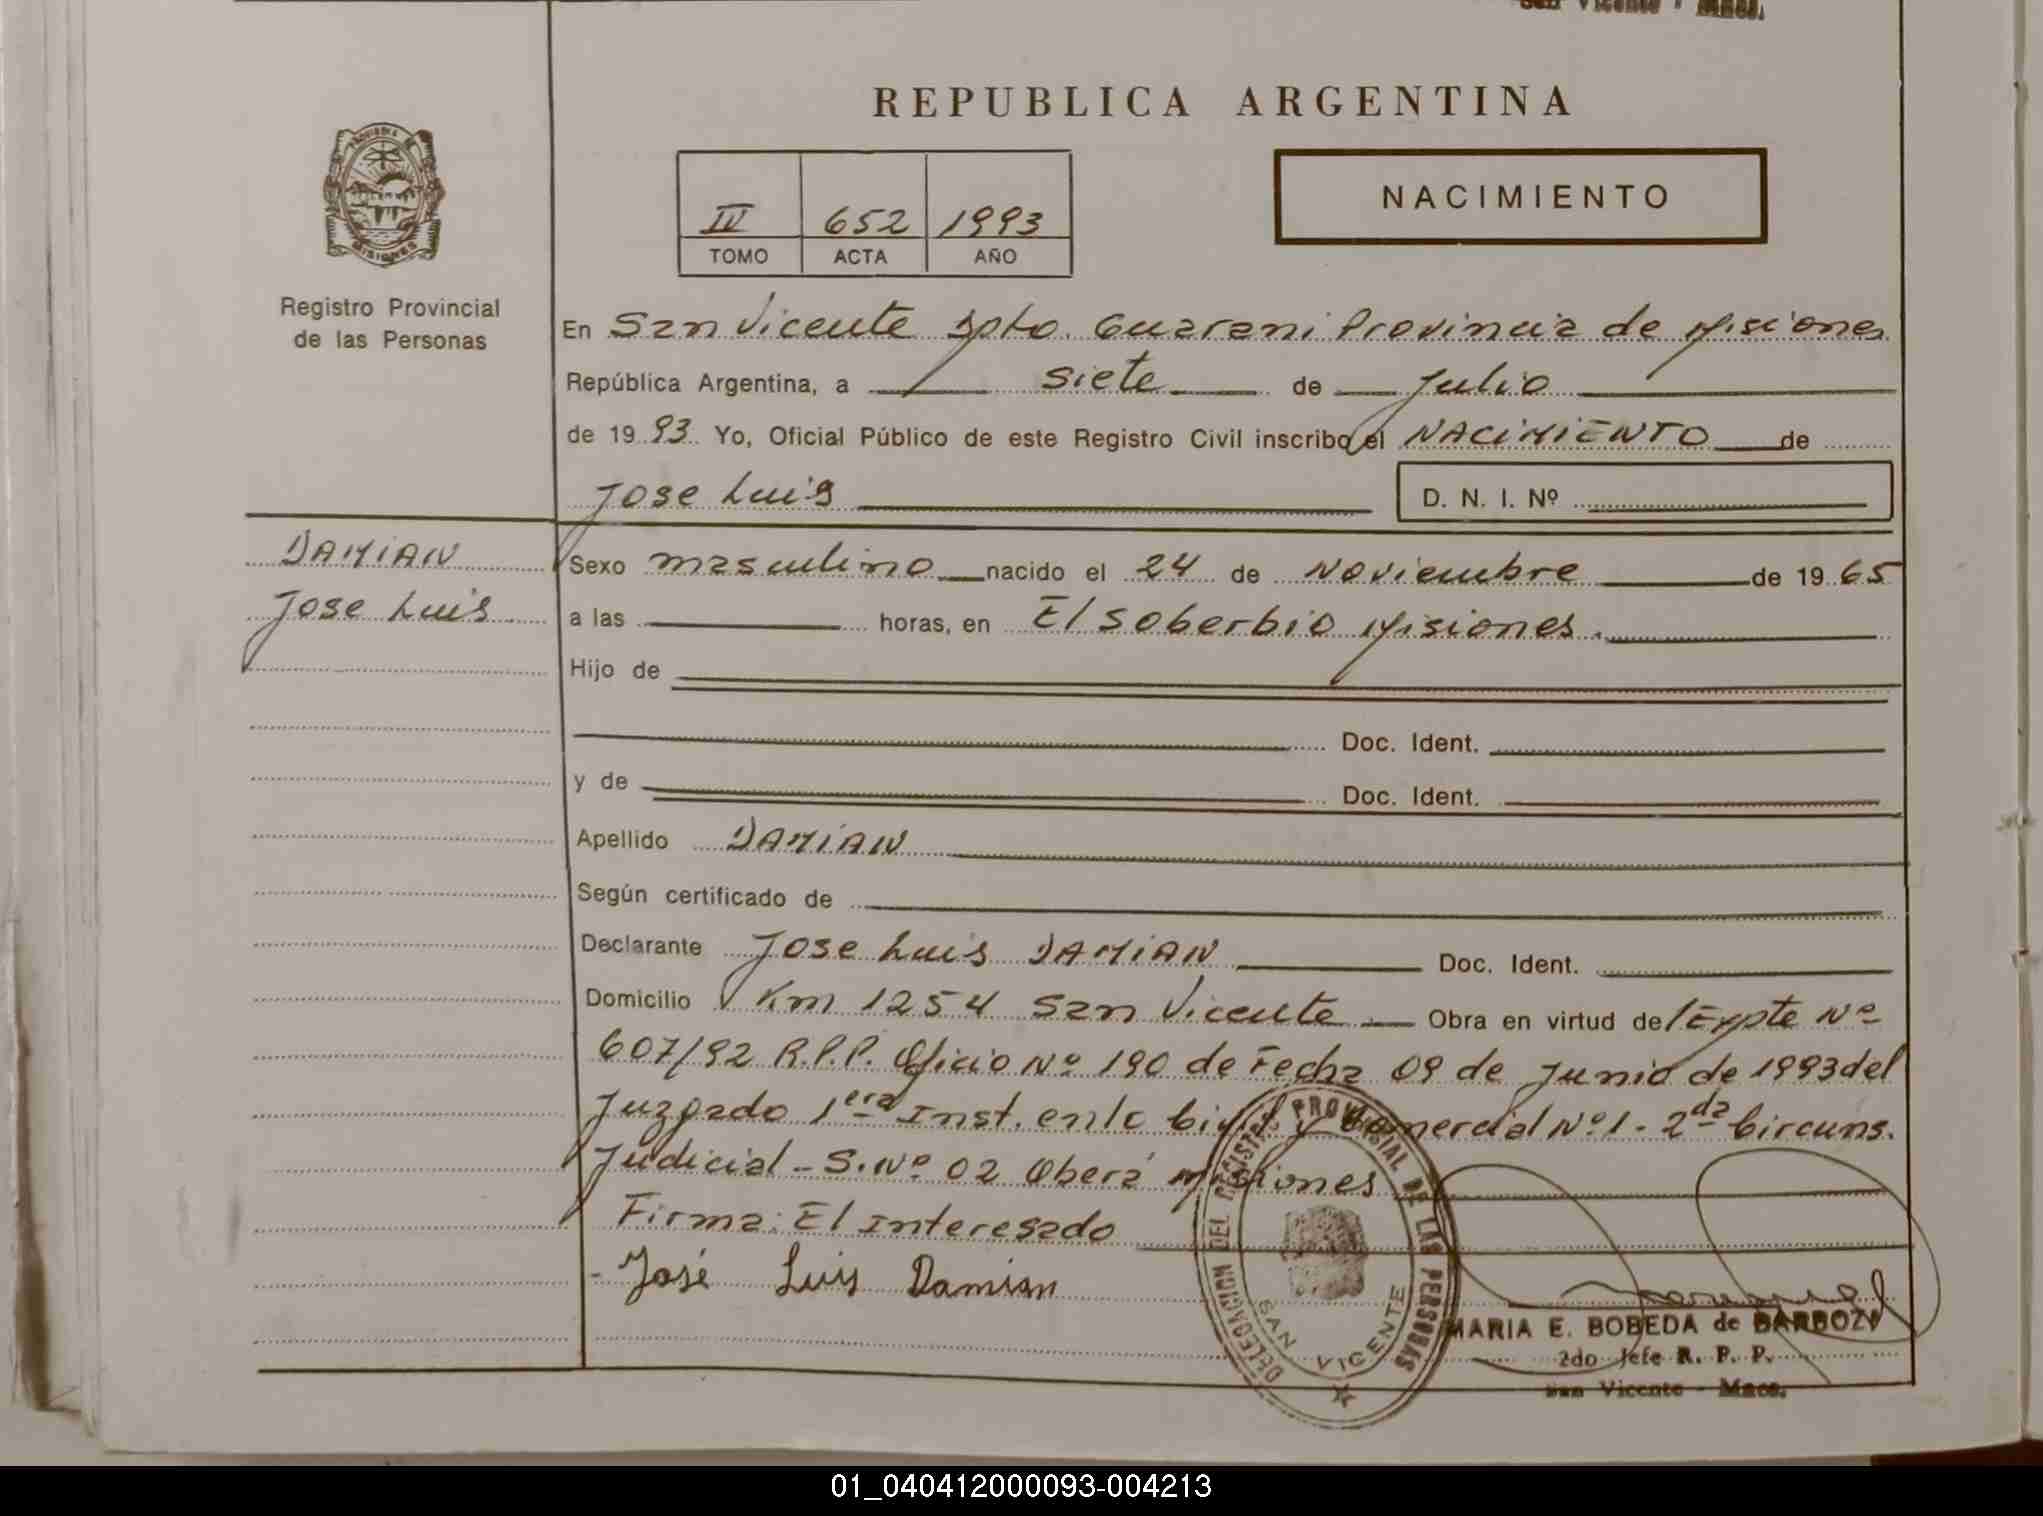 San Vicente - Mnes.
REPUBLICA ARGENTINA
PROVINCIA DE
MISIONES
Registro Provincial
de las Personas
NACIMIENTO
IV 652 1993
TOMO ACTA AÑO
En San Vicente Dpto. Guarani Provincia de Misiones
República Argentina, a siete de Julio
de 1993 Yo, Oficial Público de este Registro Civil inscribo el NACIMIENTO de
Jose Luis D. N. I. Nº
DAMIAN
Jose Luis
Sexo masculino nacido el 24 de Noviembre de 1965
a las horas, en El Soberbio Misiones.
Hijo de
Doc. Ident.
y de Doc. Ident.
Apellido DAMIAN
Según certificado de
Declarante Jose Luis DAMIAN Doc. Ident.
Domicilio Km 1254 San Vicente Obra en virtud del Expte Nº
607/92 R.P.P. Oficio Nº 190 de Fecha 09 de Junio de 1993 del
Juzgado 1era Inst. en lo Civil y Comercial Nº 1 - 2da Circuns.
Judicial - S. Nº 02 Oberá Misiones
Firma: El Interesado
- José Luis Damian
DELEGACION DEL REGISTRO PROVINCIAL DE LAS PERSONAS
SAN VICENTE
MARIA E. BOBEDA de BARBOZA
2do Jefe R. P. P.
San Vicente - Mnes.
01_040412000093-004213